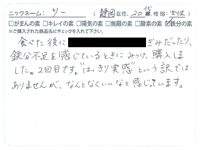 ニックネーム: リー 静岡 在住, 20代 性別: 女性
□がまんの素 □キレイの素 □陽気の素 □無限の素 □酵素の素 ☑鉄分の素
※ご購入された商品名にチェックを入れて下さい。
食べた後に ぎみだったり、
鉄分不足を感じているときにみつけ、購入しま
した。2回目です。"はっきり実感"という訳では
ありませんが、なんとなくいいなと感じています。